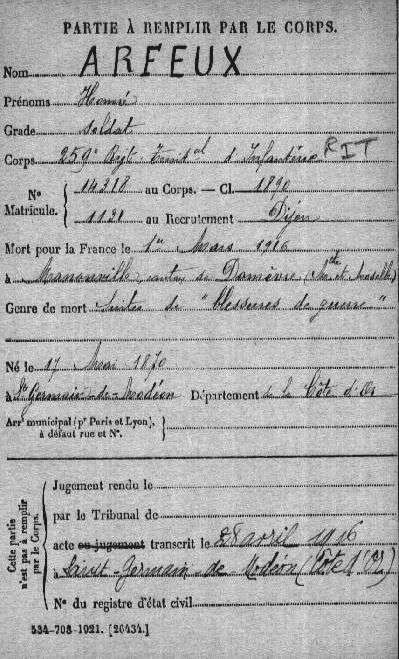 PARTIE À REMPLIR PAR LE CORPS.
Nom ARFEUX
Prénoms Honoré
Grade Soldat
Corps 259e Regt Territal d'Infanterie RIT
No Matricule. 14318 au Corps. — Cl. 1890
1131 au Recrutement Dijon
Mort pour la France le 1er Mars 1916
à Manonville, canton de Domèvre (Mthe et Moselle)
Genre de mort Suites de "Blessures de guerre"
Né le 17 Mai 1870
à St Germain-de-Modéon Département de la Côte d'Or
Arrt municipal (pr Paris et Lyon), à défaut rue et No.
Cette partie n'est pas à remplir par le Corps.
Jugement rendu le
par le Tribunal de
acte ou jugement transcrit le 28 avril 1916
à Saint-Germain de Modéon (Côte d'Or)
No du registre d'état civil
534-708-1921. [26434.]